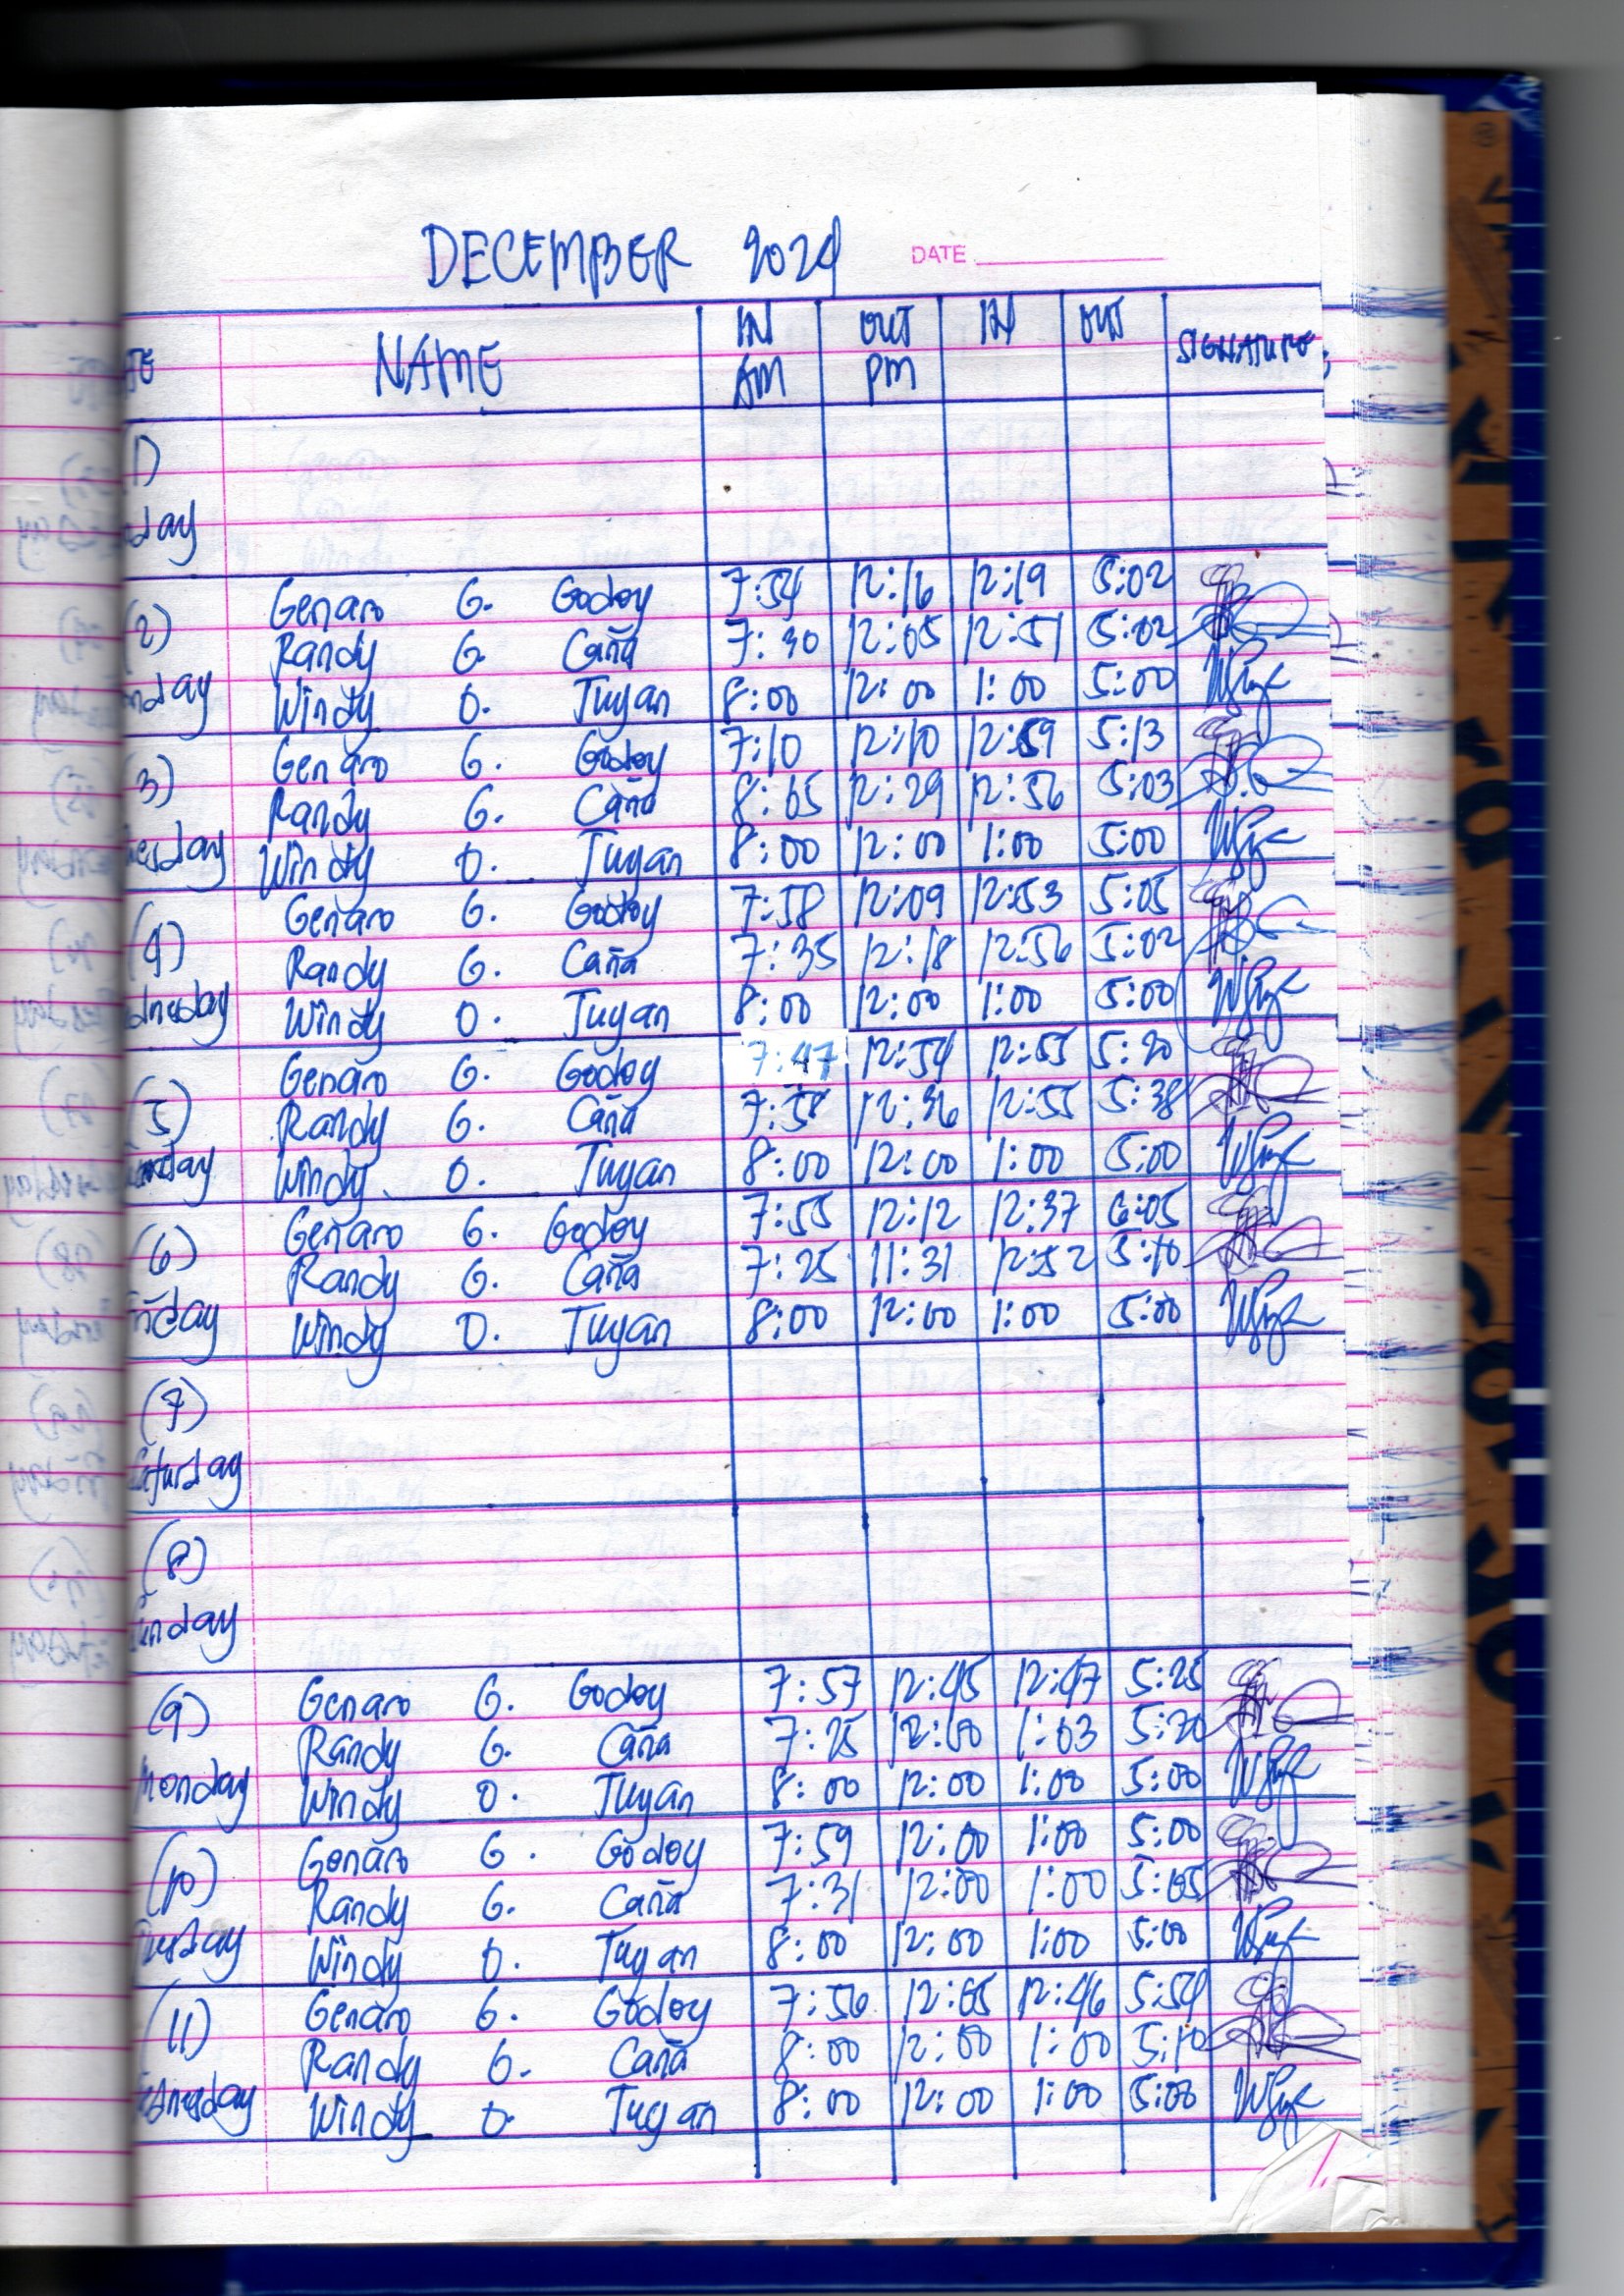 DECEMBER 2024 DATE
TE NAME IN AM OUT PM IN OUT SIGNATURE
1)
day
Genaro G. Godoy 7:54 12:16 12:19 5:02
(2) Randy G. Caña 7:30 12:05 12:51 5:02
nday Windy O. Tuyan 8:00 12:00 1:00 5:00
Genaro G. Godoy 7:10 12:10 12:59 5:13
3) Randy G. Caña 8:05 12:29 12:56 5:03
esday Windy O. Tuyan 8:00 12:00 1:00 5:00
Genaro G. Godoy 7:58 12:09 12:53 5:05
(4) Randy G. Caña 7:35 12:18 12:56 5:02
dnesday Windy O. Tuyan 8:00 12:00 1:00 5:00
Genaro G. Godoy 7:47 12:54 12:55 5:20
(5) Randy G. Caña 7:58 12:36 12:55 5:38
day Windy O. Tuyan 8:00 12:00 1:00 5:00
Genaro G. Godoy 7:55 12:12 12:37 6:05
(6) Randy G. Caña 7:25 11:31 12:52 5:10
riday Windy O. Tuyan 8:00 12:00 1:00 5:00
(7)
aturday
(8)
unday
(9) Genaro G. Godoy 7:57 12:45 12:47 5:25
Randy G. Caña 7:25 12:00 1:03 5:20
Monday Windy O. Tuyan 8:00 12:00 1:00 5:00
Genaro G. Godoy 7:59 12:00 1:00 5:00
(10) Randy G. Caña 7:31 12:00 1:00 5:05
Tuesday Windy O. Tuyan 8:00 12:00 1:00 5:00
(11) Genaro G. Godoy 7:56 12:05 12:46 5:54
Randy G. Caña 8:00 12:00 1:00 5:10
ednesday Windy O. Tuyan 8:00 12:00 1:00 5:00